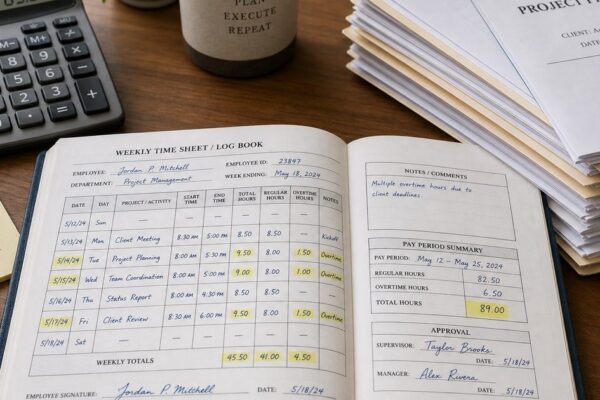 PLAN
EXECUTE
REPEAT
PROJECT
CLIENT:
WEEKLY TIME SHEET / LOG BOOK
EMPLOYEE: Jordan P. Mitchell EMPLOYEE ID: 23847
DEPARTMENT: Project Management WEEK ENDING: May 18, 2024
DATE DAY PROJECT / ACTIVITY START TIME END TIME TOTAL HOURS REGULAR HOURS OVERTIME HOURS NOTES
5/12/24 Sun — — — — — —
5/13/24 Mon Client Meeting 8:30 AM 5:00 PM 8.50 8.50 — Kickoff
5/14/24 Tue Project Planning 8:00 AM 5:30 PM 9.50 8.00 1.50 Overtime
5/15/24 Wed Team Coordination 8:00 AM 5:00 PM 9.00 8.00 1.00 Overtime
5/16/24 Thu Status Report 8:00 AM 4:30 PM 8.50 8.50 —
5/17/24 Fri Client Review 8:30 AM 6:00 PM 9.50 8.00 1.50 Overtime
5/18/24 Sat — — — — — —
WEEKLY TOTALS 45.50 41.00 4.50
EMPLOYEE SIGNATURE: Jordan P. Mitchell DATE: 5/18/24
NOTES / COMMENTS
Multiple overtime hours due to
client deadlines.
PAY PERIOD SUMMARY
PAY PERIOD: May 12 – May 25, 2024
REGULAR HOURS 82.50
OVERTIME HOURS 6.50
TOTAL HOURS 89.00
APPROVAL
SUPERVISOR: Taylor Brooks
DATE: 5/18/24
MANAGER: Alex Rivera
DATE: 5/18/24